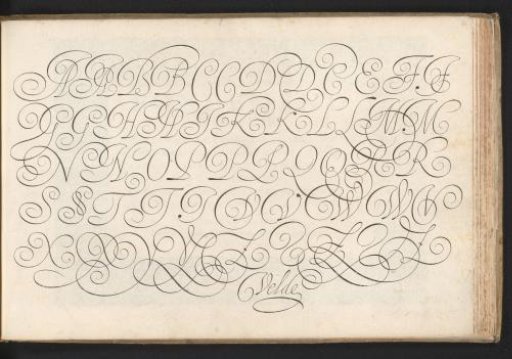 A A A B B C C D D C E F F
G G H H I K K L L M M
N N O P P P Q Q R R
S S T T T V V W W W
X X Y Y Z Z Z Z Z
Velde